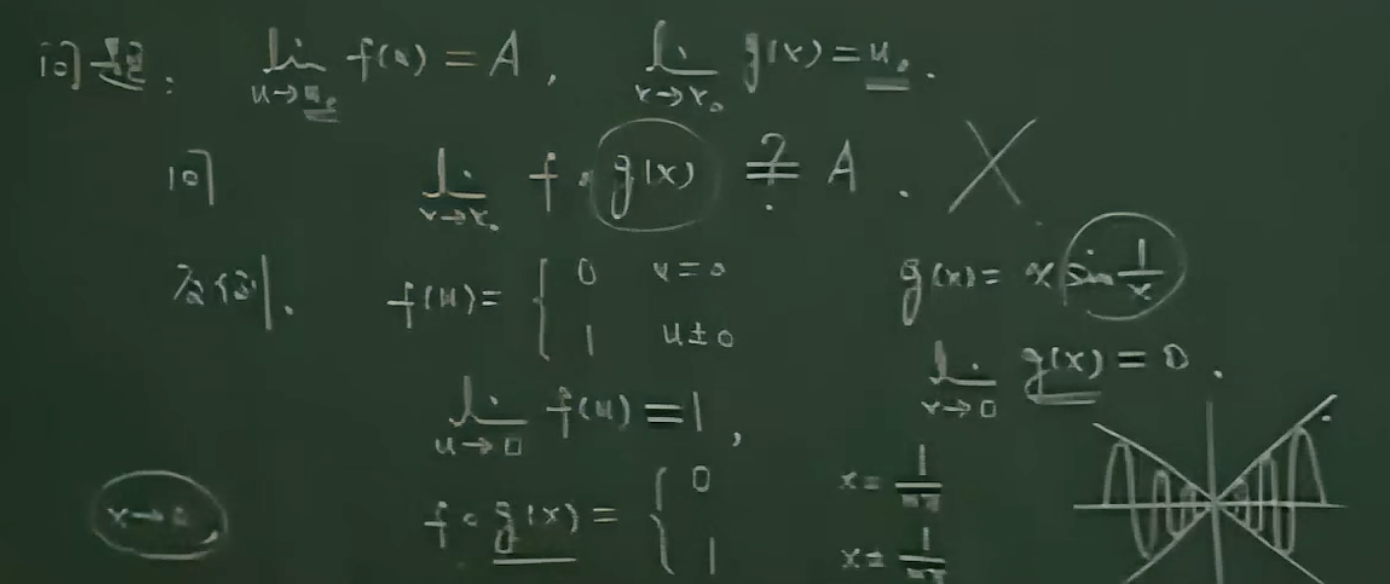 问题: lim u→u₀ f(u) = A, lim x→x₀ g(x) = u₀.
问 lim x→x₀ f∘g(x) ≟ A. ✗
反例. f(u) = { 0 u=0 g(x) = x sin 1/x
1 u≠0
lim x→0 g(x) = 0.
lim u→0 f(u) = 1,
x→0 f∘g(x) = { 0 x = 1/nπ
1 x ≠ 1/nπ